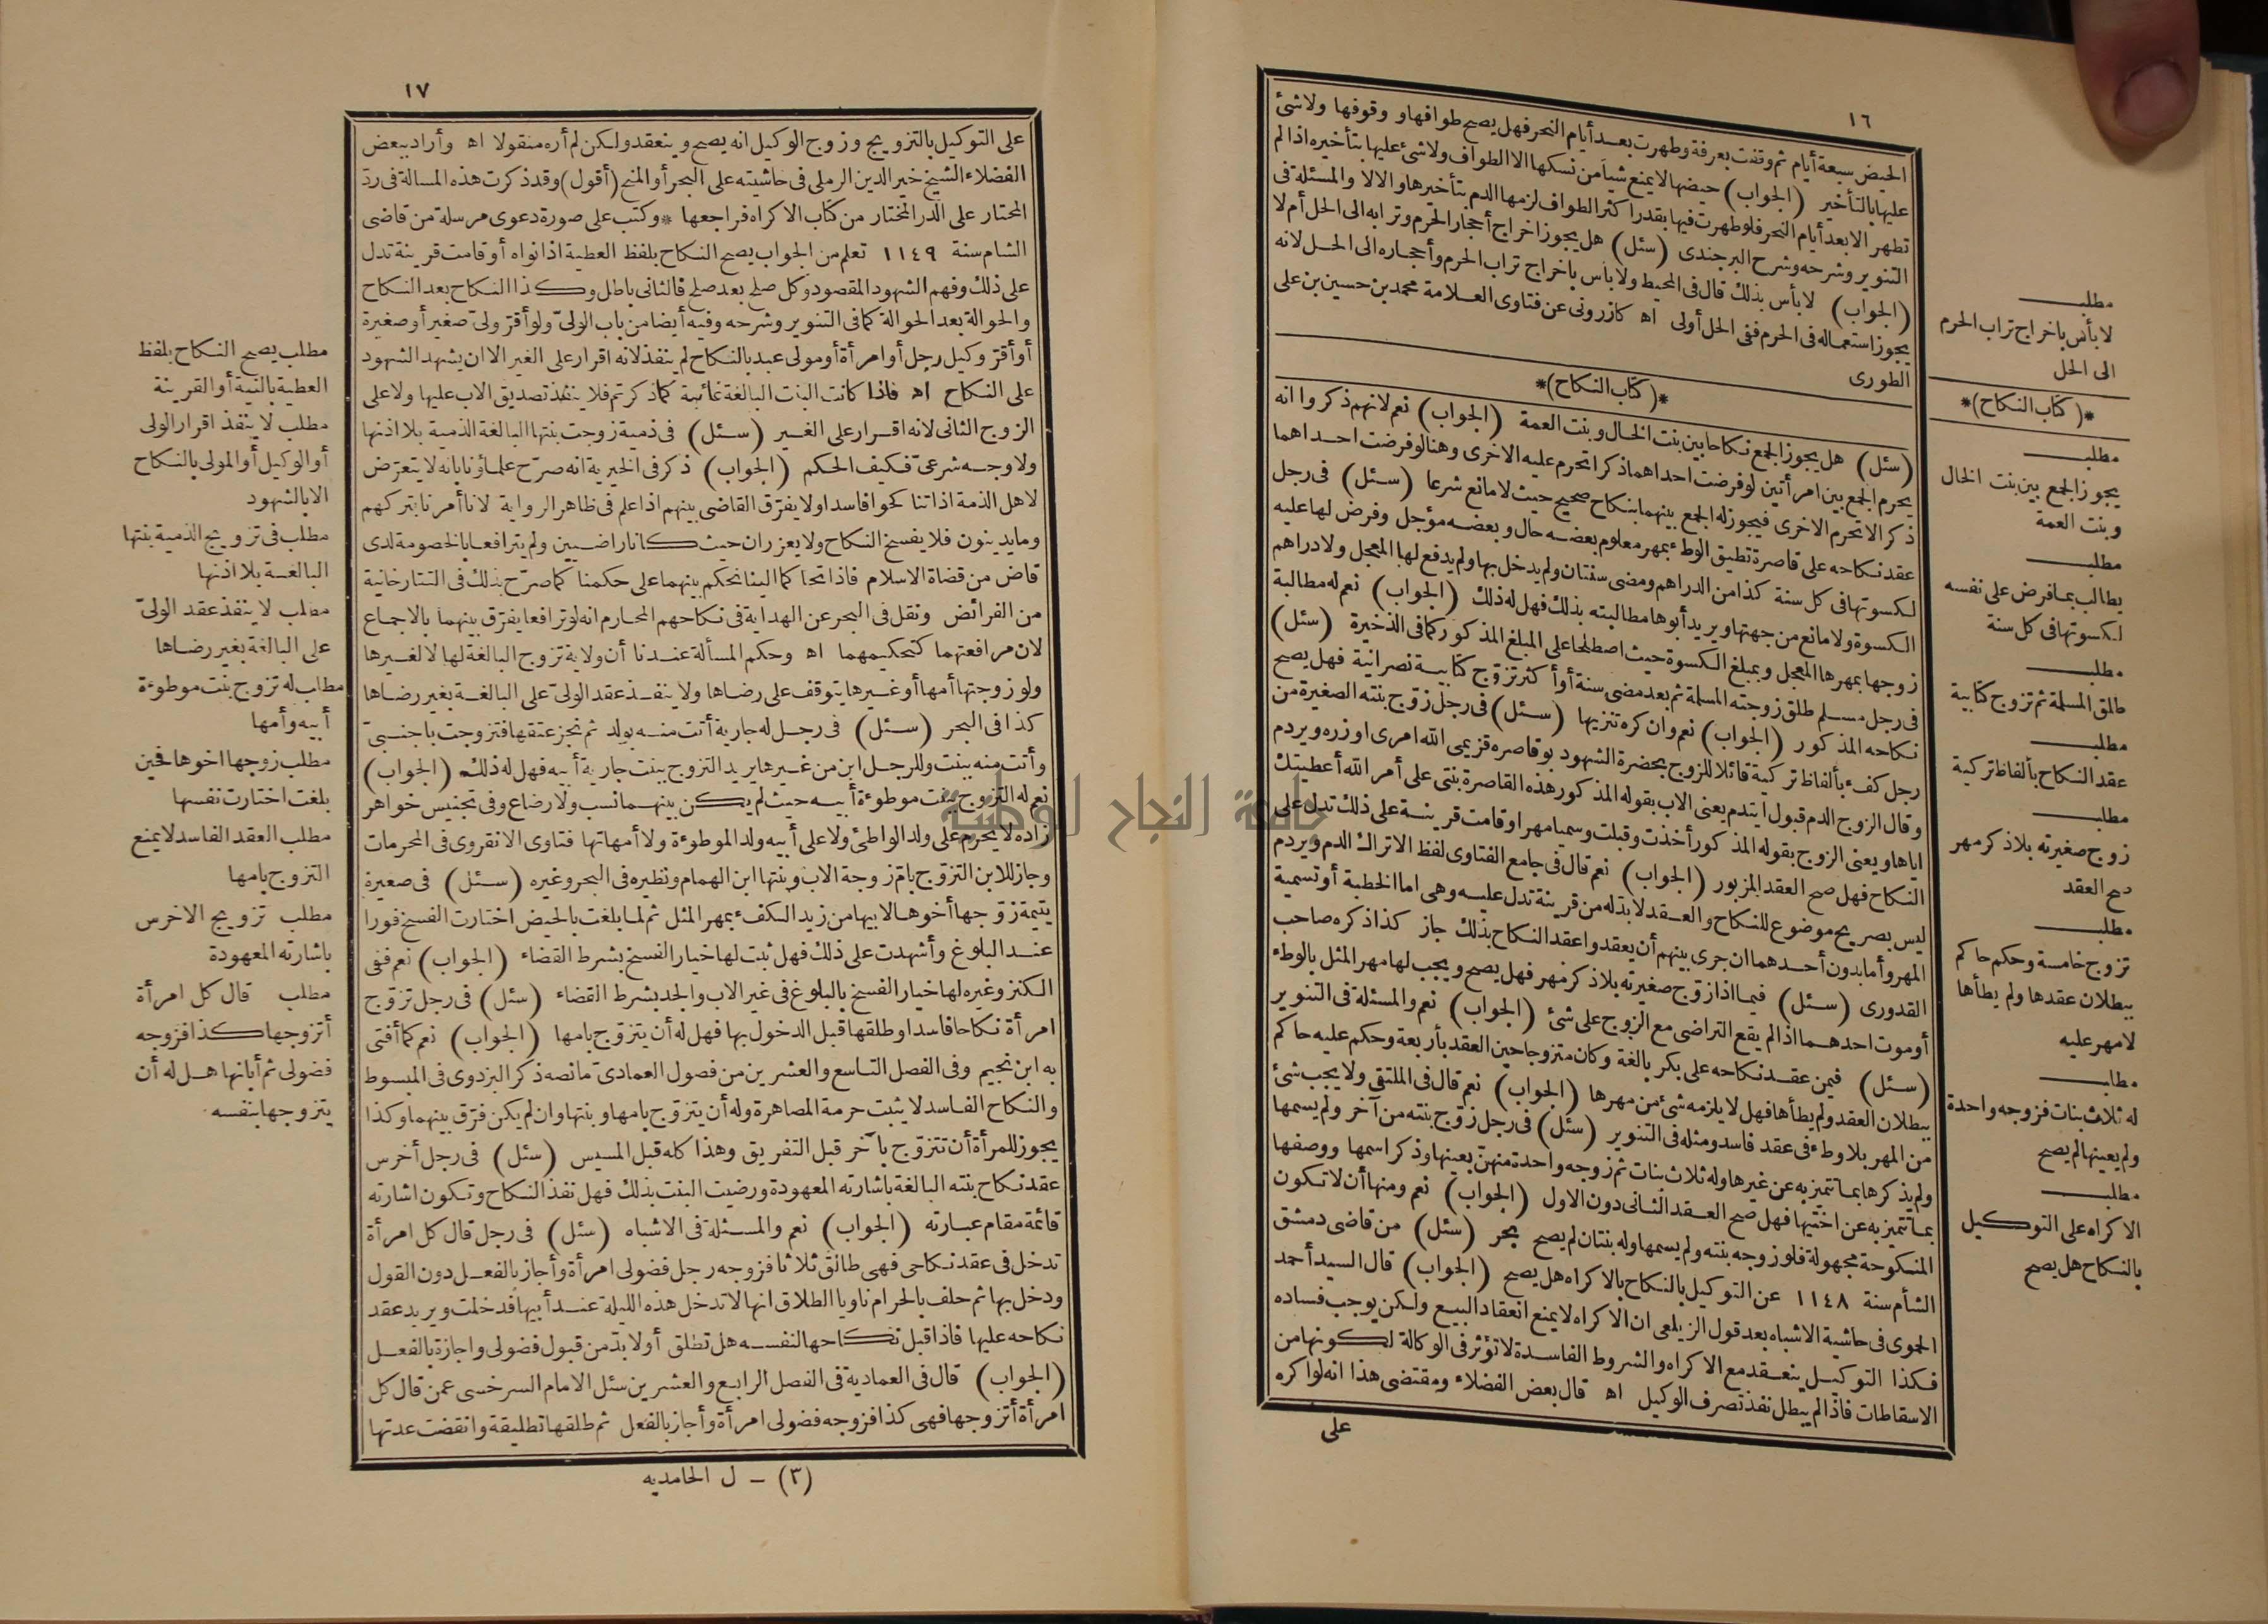 ١٦
الحيض سبعة أيام ثم وقفت بعرفة وطهرت بعد أيام النحر فهل يصح طوافها ووقوفها ولا شئ
عليها بالتأخير (الجواب) حيضها لا يمنع شيأ من نسكها الا الطواف ولا شئ عليها بتأخيره اذا لم
تطهر الا بعد أيام النحر فلو طهرت فيها بقدر أكثر الطواف لزمها الدم بتأخيرها والا لا والمسئلة فى
التنوير وشرحه وشرح البرجندى (سئل) هل يجوز اخراج أحجار الحرم وترابه الى الحل أم لا
(الجواب) لا بأس بذلك قال فى المحيط ولا بأس باخراج تراب الحرم وأحجاره الى الحل لانه
يجوز استعماله فى الحرم ففى الحل أولى اه كازرونى عن فتاوى العلامة محمد بن حسين بن على
الطورى
*(كتاب النكاح)*
(سئل) هل يجوز الجمع نكاحا بين بنت الخال وبنت العمة (الجواب) نعم لانهم ذكروا انه
يحرم الجمع بين امرأتين لو فرضت احداهما ذكرا تحرم عليه الاخرى وهنا لو فرضت احداهما
ذكرا لا تحرم الاخرى فيجوز له الجمع بينهما بنكاح صحيح حيث لا مانع شرعا (سئل) فى رجل
عقد نكاحه على قاصرة تطيق الوطء بمهر معلوم بعضه حال وبعضه مؤجل وفرض لها عليه
لكسوتها فى كل سنة كذا من الدراهم ومضى سنتان ولم يدخل بها ولم يدفع لها المعجل ولا دراهم
الكسوة ولا مانع من جهتها ويريد أبوها مطالبته بذلك فهل له ذلك (الجواب) نعم له مطالبة
زوجها بمهرها المعجل وبمبلغ الكسوة حيث اصطلحا على المبلغ المذكور كما فى الذخيرة (سئل)
فى رجل مسلم طلق زوجته المسلمة ثم بعد مضى سنة أو أكثر تزوّج كتابية نصرانية فهل يصح
نكاحه المذكور (الجواب) نعم وان كره تنزيها (سئل) فى رجل زوّج بنته الصغيرة من
رجل كفء بألفاظ تركية قائلا للزوج بحضرة الشهود بو قاصره قزيمى الله امرى اوزره ويردم
وقال الزوج الدم قبول ايتدم يعنى الاب بقوله المذكور هذه القاصرة بنتى على أمر الله أعطيتك
اياها ويعنى الزوج بقوله المذكور أخذت وقبلت وسميا مهرا وقامت قرينة على ذلك تدل على
النكاح فهل صح العقد المزبور (الجواب) نعم قال فى جامع الفتاوى لفظ الاتراك الدم ويردم
ليس بصريح موضوع للنكاح والعقد لا بد له من قرينة تدل عليه وهى اما الخطبة أو تسمية
المهر وأما بدون أحدهما ان جرى بينهم أن يعقدوا عقد النكاح بذلك جاز كذا ذكره صاحب
القدورى (سئل) فيما اذا زوّج صغيرته بلا ذكر مهر فهل يصح ويجب لها مهر المثل بالوطء
أو موت احدهما اذا لم يقع التراضى مع الزوج على شئ (الجواب) نعم والمسئلة فى التنوير
(سئل) فيمن عقد نكاحه على بكر بالغة وكان متزوجا حين العقد بأربعة وحكم عليه حاكم
ببطلان العقد ولم يطأها فهل لا يلزمه شئ من مهرها (الجواب) نعم قال فى الملتقى ولا يجب شئ
من المهر بلا وطء فى عقد فاسد ومثله فى التنوير (سئل) فى رجل زوّج بنته من آخر ولم يسمها
ولم يذكرها بما تتميز به عن غيرها وله ثلاث بنات ثم زوجه واحدة منهن بعينها وذكر اسمها ووصفها
بما تتميز به عن اختيها فهل صح العقد الثانى دون الاول (الجواب) نعم ومنها أن لا تكون
المنكوحة مجهولة فلو زوجه بنته ولم يسمها وله بنتان لم يصح بحر (سئل) من قاضى دمشق
الشأم سنة ١١٤٨ عن التوكيل بالنكاح بالاكراه هل يصح (الجواب) قال السيد أحمد
الحموى فى حاشية الاشباه بعد قول الزيلعى ان الاكراه لا يمنع انعقاد البيع ولكن يوجب فساده
فكذا التوكيل ينعقد مع الاكراه والشروط الفاسدة لا تؤثر فى الوكالة لكونها من
الاسقاطات فاذا لم يبطل نفذ تصرف الوكيل اه قال بعض الفضلاء ومقتضى هذا انه لو اكره
على
مطلب
لا بأس باخراج تراب الحرم
الى الحل
*(كتاب النكاح)*
مطلب
يجوز الجمع بين بنت الخال
وبنت العمة
مطلب
يطالب بما فرض على نفسه
لكسوتها فى كل سنة
مطلب
طلق المسلمة ثم تزوج كتابية
مطلب
عقد النكاح بألفاظ تركية
مطلب
زوج صغيرته بلا ذكر مهر
صح العقد
مطلب
تزوج خامسة وحكم حاكم
ببطلان عقدها ولم يطأها
لا مهر عليه
مطلب
له ثلاث بنات فزوجه واحدة
ولم يعينها لم يصح
مطلب
الاكراه على التوكيل
بالنكاح هل يصح
١٧
على التوكيل بالتزويج وزوج الوكيل انه يصح وينعقد ولكن لم أره منقولا اه وأراد ببعض
الفضلاء الشيخ خير الدين الرملى فى حاشيته على البحر أو المنح (أقول) وقد ذكرت هذه المسألة فى ردّ
المحتار على الدر المختار من كتاب الاكراه فراجعها *وكتب على صورة دعوى مرسلة من قاضى
الشام سنة ١١٤٩ تعلم من الجواب يصح النكاح بلفظ العطية اذا نواه أو قامت قرينة تدل
على ذلك وفهم الشهود المقصود وكل صلح بعد صلح فالثانى باطل وكذا النكاح بعد النكاح
والحوالة بعد الحوالة كما فى التنوير وشرحه وفيه أيضا من باب الولىّ ولو أقرّ ولىّ صغير أو صغيرة
أو أقرّ وكيل رجل أو امرأة أو مولى عبد بالنكاح لم ينفذ لانه اقرار على الغير الا ان يشهد الشهود
على النكاح اه فاذا كانت البنت البالغة غائبة كما ذكرتم فلا ينفذ تصديق الاب عليها ولا على
الزوج الثانى لانه اقرار على الغير (سئل) فى ذمية زوجت بنتها البالغة الذمية بلا اذنها
ولا وجه شرعىّ فكيف الحكم (الجواب) ذكر فى الخيرية انه صرّح علماؤنا بانه لا يتعرّض
لاهل الذمة اذا تناكحوا فاسدا ولا يفرّق القاضى بينهم اذا علم فى ظاهر الرواية لانا أمرنا بتركهم
وما يدينون فلا يفسخ النكاح ولا يعزران حيث كانا راضيين ولم يترافعا بالخصومة لدى
قاض من قضاة الاسلام فاذا تحاكما الينا نحكم بينهما على حكمنا كما صرّح بذلك فى التتارخانية
من الفرائض ونقل فى البحر عن الهداية فى نكاحهم المحارم انه لو ترافعا يفرّق بينهما بالاجماع
لان مرافعتهما كتحكيمهما اه وحكم المسألة عندنا أن ولاية تزوج البالغة لها لا لغيرها
ولو زوجتها أمها أو غيرها يتوقف على رضاها ولا ينفذ عقد الولىّ على البالغة بغير رضاها
كذا فى البحر (سئل) فى رجل له جارية أتت منه بولد ثم نجز عتقها فتزوجت باجنبىّ
وأتت منه ببنت وللرجل ابن من غيرها يريد التزوج ببنت جارية أبيه فهل له ذلك (الجواب)
نعم له التزوج ببنت موطوءة أبيه حيث لم يكن بينهما نسب ولا رضاع وفى تجنيس خواهر
زاده لا يحرم على ولد الواطئ ولا على أبيه ولد الموطوءة ولا أمهاتها فتاوى الانقروى فى المحرمات
وجاز للابن التزوّج بامّ زوجة الاب وبنتها ابن الهمام ونظيره فى البحر وغيره (سئل) فى صغيرة
يتيمة زوّجها أخوها لابيها من زيد الكفء بمهر المثل ثم لما بلغت بالحيض اختارت الفسخ فورا
عند البلوغ وأشهدت على ذلك فهل ثبت لها خيار الفسخ بشرط القضاء (الجواب) نعم ففى
الكنز وغيره لها خيار الفسخ بالبلوغ فى غير الاب والجد بشرط القضاء (سئل) فى رجل تزوّج
امرأة نكاحا فاسدا وطلقها قبل الدخول بها فهل له أن يتزوّج بامها (الجواب) نعم كما أفتى
به ابن نجيم وفى الفصل التاسع والعشرين من فصول العمادىّ ما نصه ذكر البزدوى فى المبسوط
والنكاح الفاسد لا يثبت حرمة المصاهرة وله أن يتزوّج بامها وبنتها وان لم يكن فرّق بينهما وكذا
يجوز للمرأة أن تتزوّج بآخر قبل التفريق وهذا كله قبل المسيس (سئل) فى رجل أخرس
عقد نكاح بنته البالغة باشارته المعهودة ورضيت البنت بذلك فهل نفذ النكاح وتكون اشارته
قائمة مقام عبارته (الجواب) نعم والمسئلة فى الاشباه (سئل) فى رجل قال كل امرأة
تدخل فى عقد نكاحى فهى طالق ثلاثا فزوجه رجل فضولى امرأة وأجاز بالفعل دون القول
ودخل بها ثم حلف بالحرام ناويا الطلاق انها لا تدخل هذه الليلة عند أبيها فدخلت ويريد عقد
نكاحه عليها فاذا قبل نكاحها لنفسه هل تطلق أو لا بدّ من قبول فضولى واجازة بالفعل
(الجواب) قال فى العمادية فى الفصل الرابع والعشرين سئل الامام السرخسى عمن قال كل
امرأة أتزوجها فهى كذا فزوجه فضولى امرأة وأجاز بالفعل ثم طلقها تطليقة وانقضت عدتها
(٣) - ل الحامديه
مطلب يصح النكاح بلفظ
العطية بالنية أو القرينة
مطلب لا ينفذ اقرار الولى
أو الوكيل أو المولى بالنكاح
الا بالشهود
مطلب فى تزويج الذمية بنتها
البالغة بلا اذنها
مطلب لا ينفذ عقد الولىّ
على البالغة بغير رضاها
مطلب له تزوج بنت موطوءة
أبيه وأمها
مطلب زوجها اخوها فحين
بلغت اختارت نفسها
مطلب العقد الفاسد لا يمنع
التزوج بامها
مطلب تزويج الاخرس
باشارته المعهودة
مطلب قال كل امرأة
أتزوجها كذا فزوجه
فضولى ثم أبانها هل له أن
يتزوجها بنفسه
جامعة النجاح الوطنية